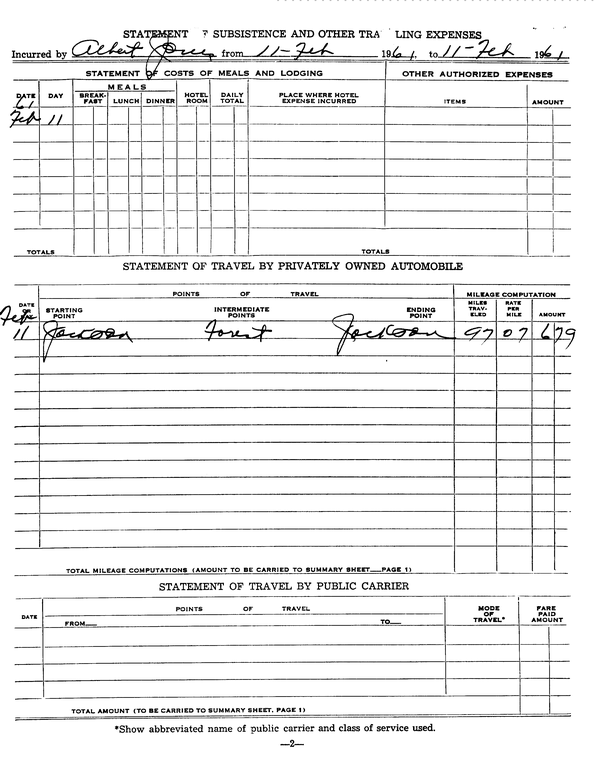 STATEMENT F SUBSISTENCE AND OTHER TRA LING EXPENSES
Incurred by Albert from 11-Feb 1961, to 11-Feb 1961
STATEMENT OF COSTS OF MEALS AND LODGING OTHER AUTHORIZED EXPENSES
DATE DAY MEALS BREAK-FAST LUNCH DINNER HOTEL ROOM DAILY TOTAL PLACE WHERE HOTEL EXPENSE INCURRED ITEMS AMOUNT
61
Feb 11
TOTALS TOTALS
STATEMENT OF TRAVEL BY PRIVATELY OWNED AUTOMOBILE
POINTS OF TRAVEL MILEAGE COMPUTATION
DATE OR STARTING POINT INTERMEDIATE POINTS ENDING POINT MILES TRAV-ELED RATE PER MILE AMOUNT
Feb
11 Jackson Forest Jackson 97 07 6 79
TOTAL MILEAGE COMPUTATIONS (AMOUNT TO BE CARRIED TO SUMMARY SHEET—PAGE 1)
STATEMENT OF TRAVEL BY PUBLIC CARRIER
DATE POINTS OF TRAVEL MODE OF TRAVEL* FARE PAID AMOUNT
FROM— TO—
TOTAL AMOUNT (TO BE CARRIED TO SUMMARY SHEET, PAGE 1)
*Show abbreviated name of public carrier and class of service used.
—2—